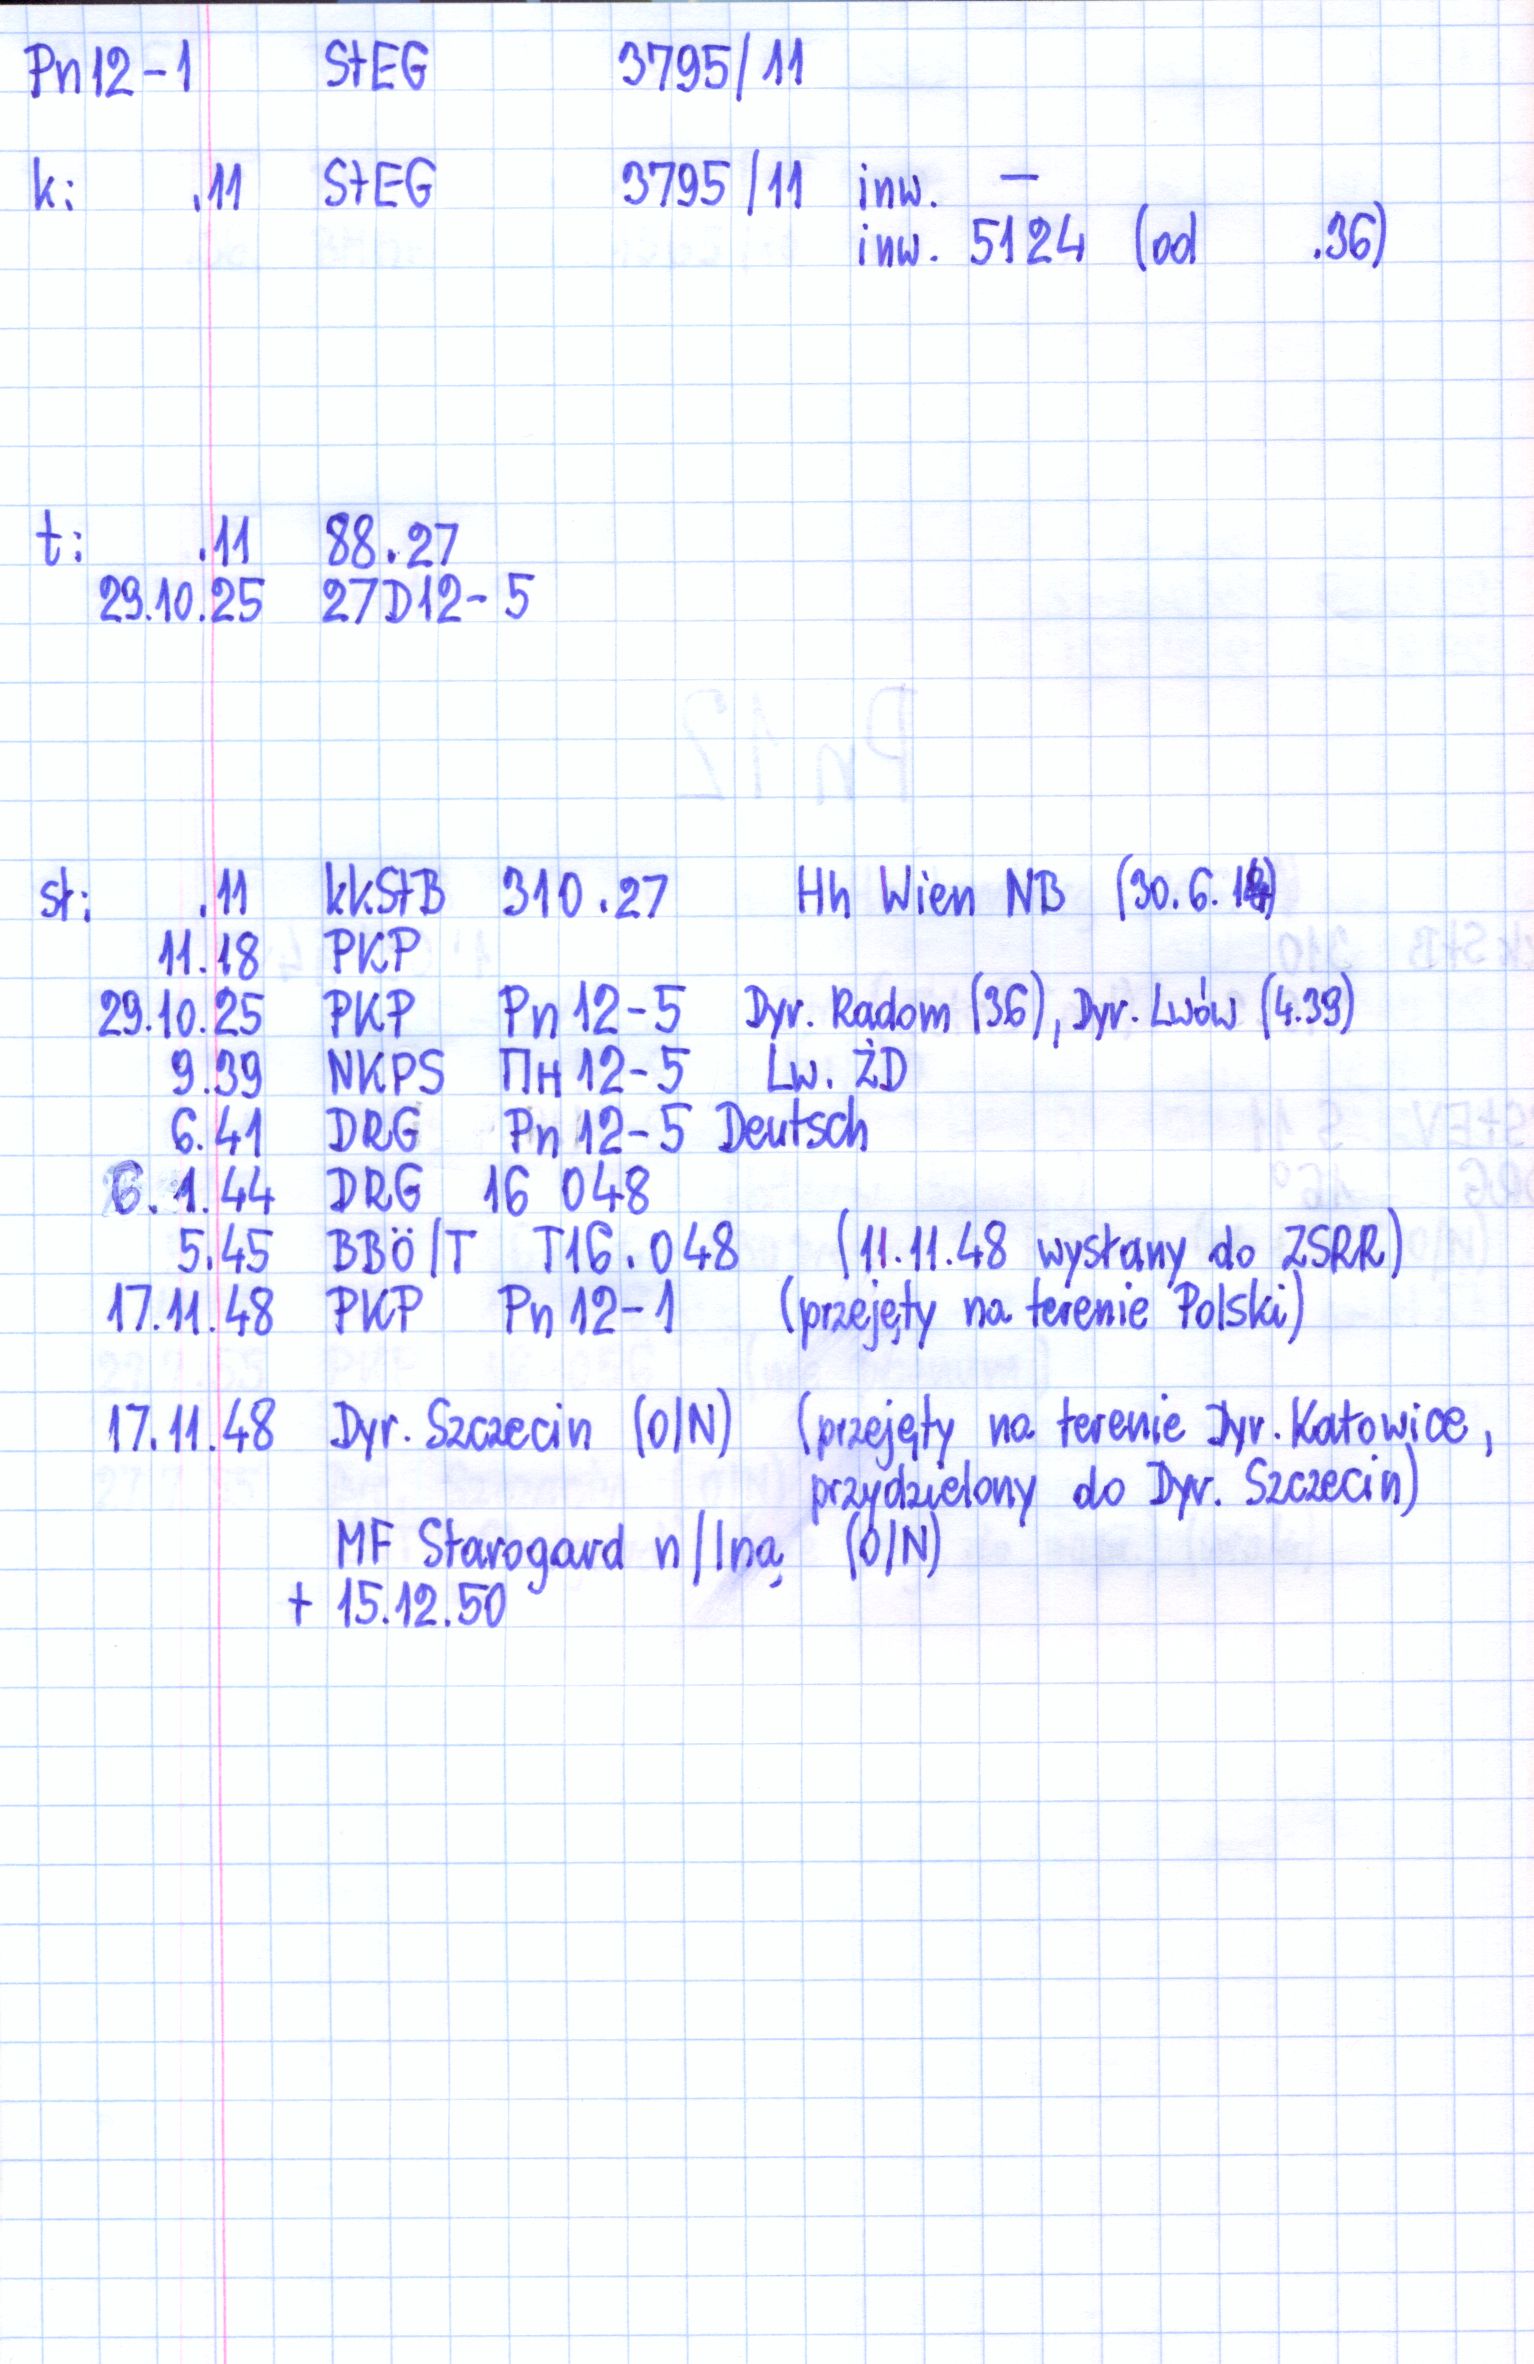 Pn12-1 StEG 3795/11
k: .11 StEG 3795/11 inw. —
inw. 5124 (od .36)
t: .11 88.27
29.10.25 27D12-5
st: .11 kkStB 310.27 Hh Wien NB (30.6.14)
11.18 PKP
29.10.25 PKP Pn12-5 Dyr. Radom (36), Dyr. Lwów (4.39)
9.39 NKPS Пн12-5 Lw. ŻD
6.41 DRG Pn12-5 Deutsch
6.1.44 DRG 16 048
5.45 BBÖ/T T16.048 (11.11.48 wysłany do ZSRR)
17.11.48 PKP Pn12-1 (przejęty na terenie Polski)
17.11.48 Dyr. Szczecin (O/N) (przejęty na terenie Dyr. Katowice,
przydzielony do Dyr. Szczecin)
MF Starogard n/Iną (O/N)
+ 15.12.50